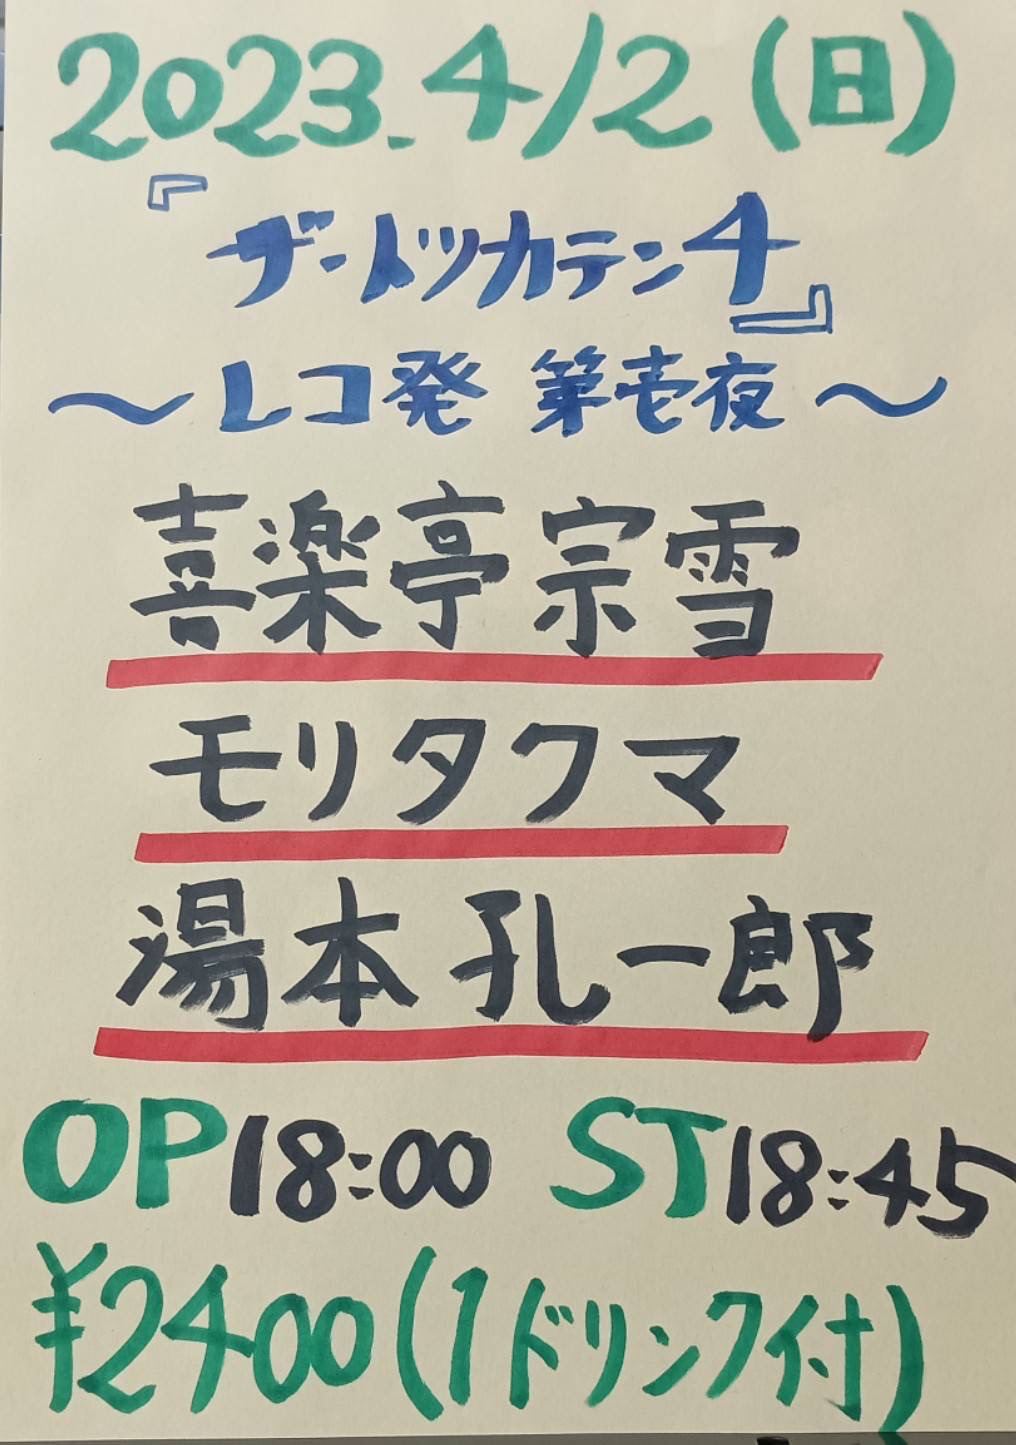 2023.4/2(日)
『ザ・トツカテン4』
〜レコ発 第壱夜〜
喜楽亭宗雪
モリタクマ
湯本孔一郎
OP18:00 ST18:45
¥2400(1ドリンク付)